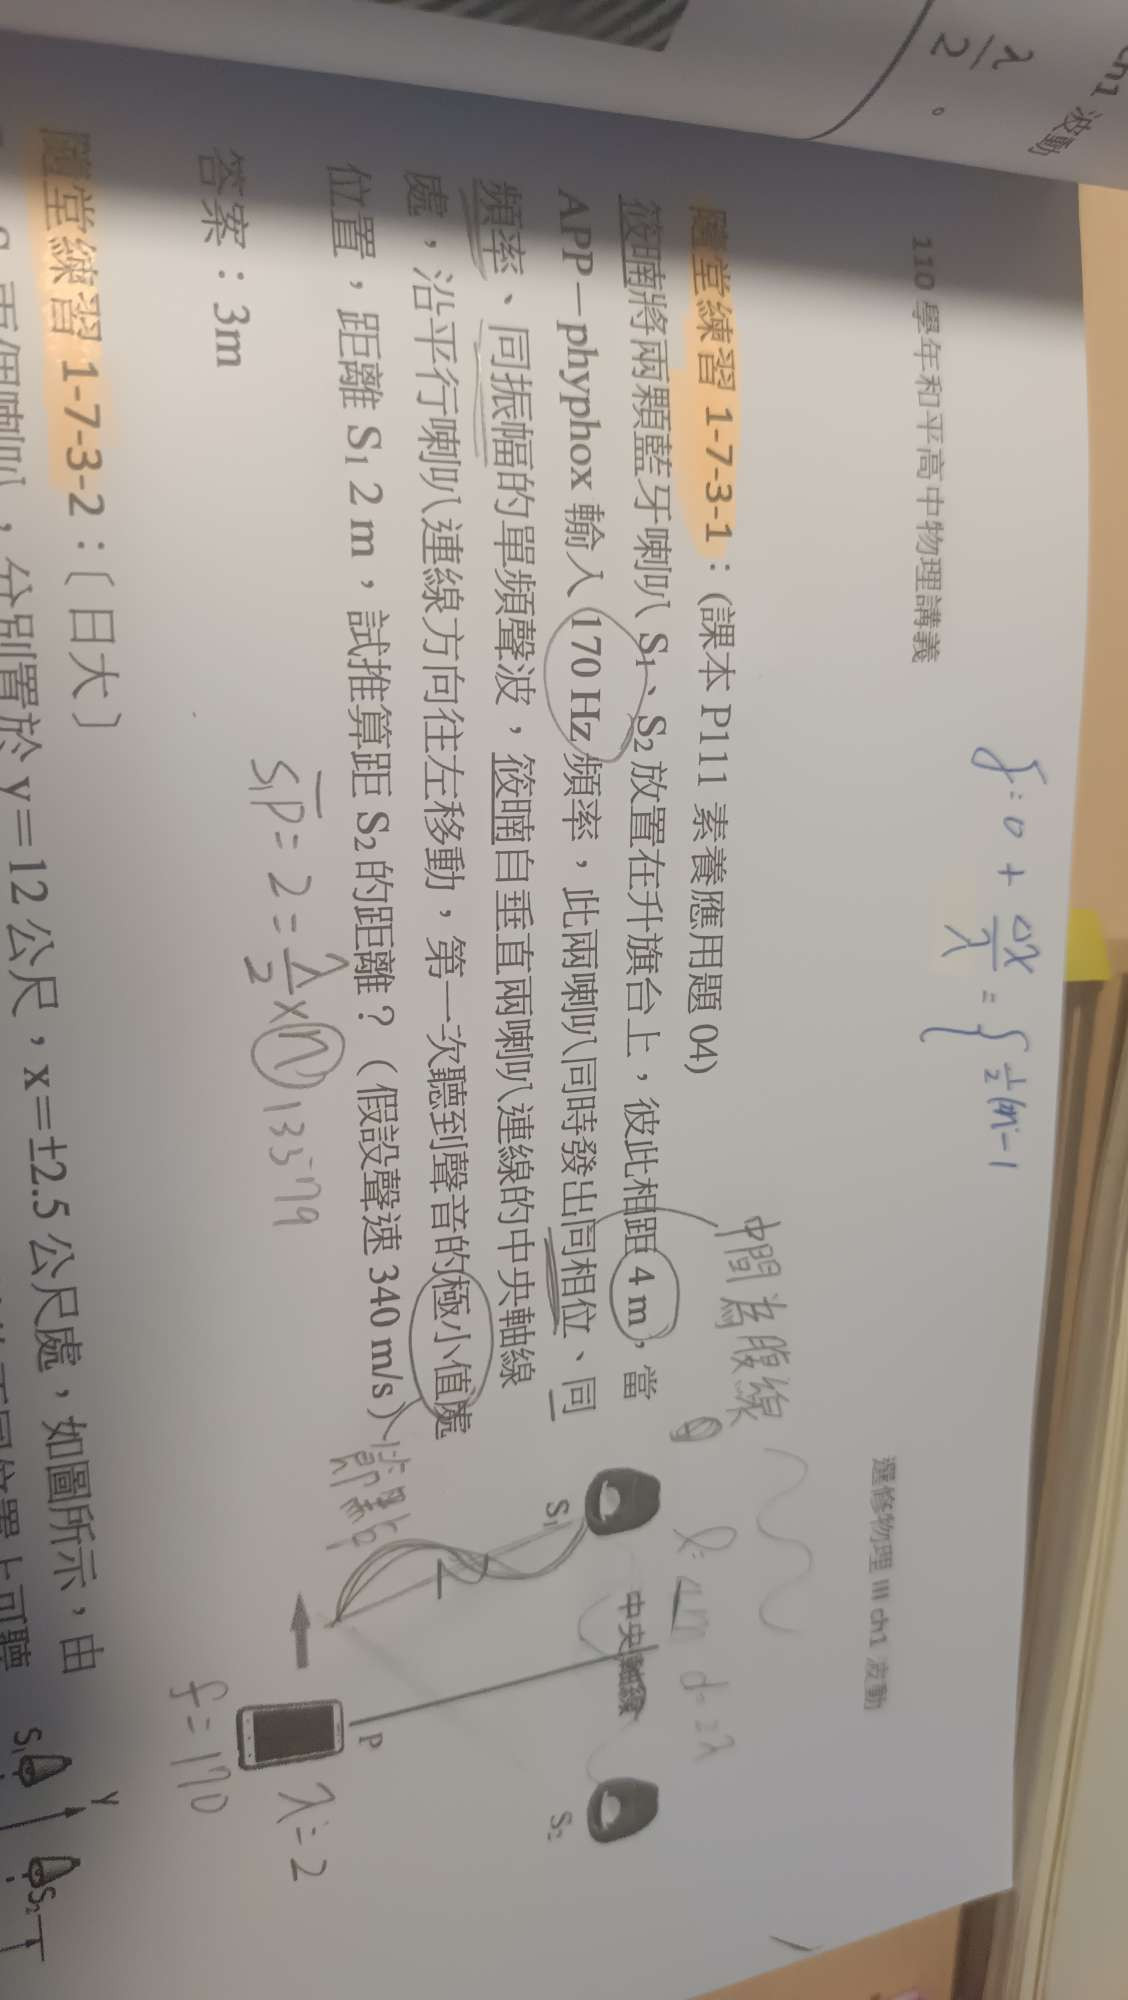 ch1 波動
λ/2 。
110 學年和平高中物理講義
選修物理 III ch1 波動
隨堂練習 1-7-3-1：(課本 P111 素養應用題 04)
筱晴將兩顆藍牙喇叭 S1、S2 放置在升旗台上，彼此相距 4 m，當
APP－phyphox 輸入 170 Hz 頻率，此兩喇叭同時發出同相位、同
頻率、同振幅的單頻聲波，筱晴自垂直兩喇叭連線的中央軸線
處，沿平行喇叭連線方向往左移動，第一次聽到聲音的極小值處
位置，距離 S1 2 m，試推算距 S2 的距離？（假設聲速 340 m/s）
答案：3m
中間為腹線
節點
S1
中央軸線
S2
P
λ=2
f=170
S1P = 2 = λ/2 × n 13579
隨堂練習 1-7-3-2：〔日大〕
兩個喇叭，分別置於 y＝12 公尺，x＝±2.5 公尺處，如圖所示，由
Y
S1
S2